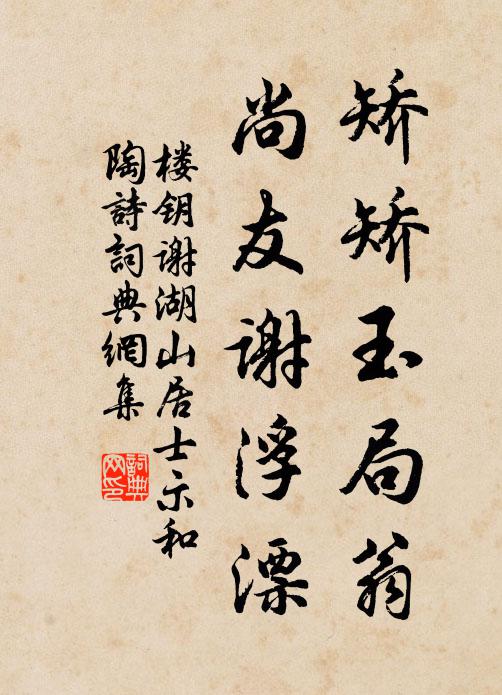 矫矫玉局翁
尚友谢浮漂
楼钥谢湖山居士示和
陶詩詞典網集
詞典
网印